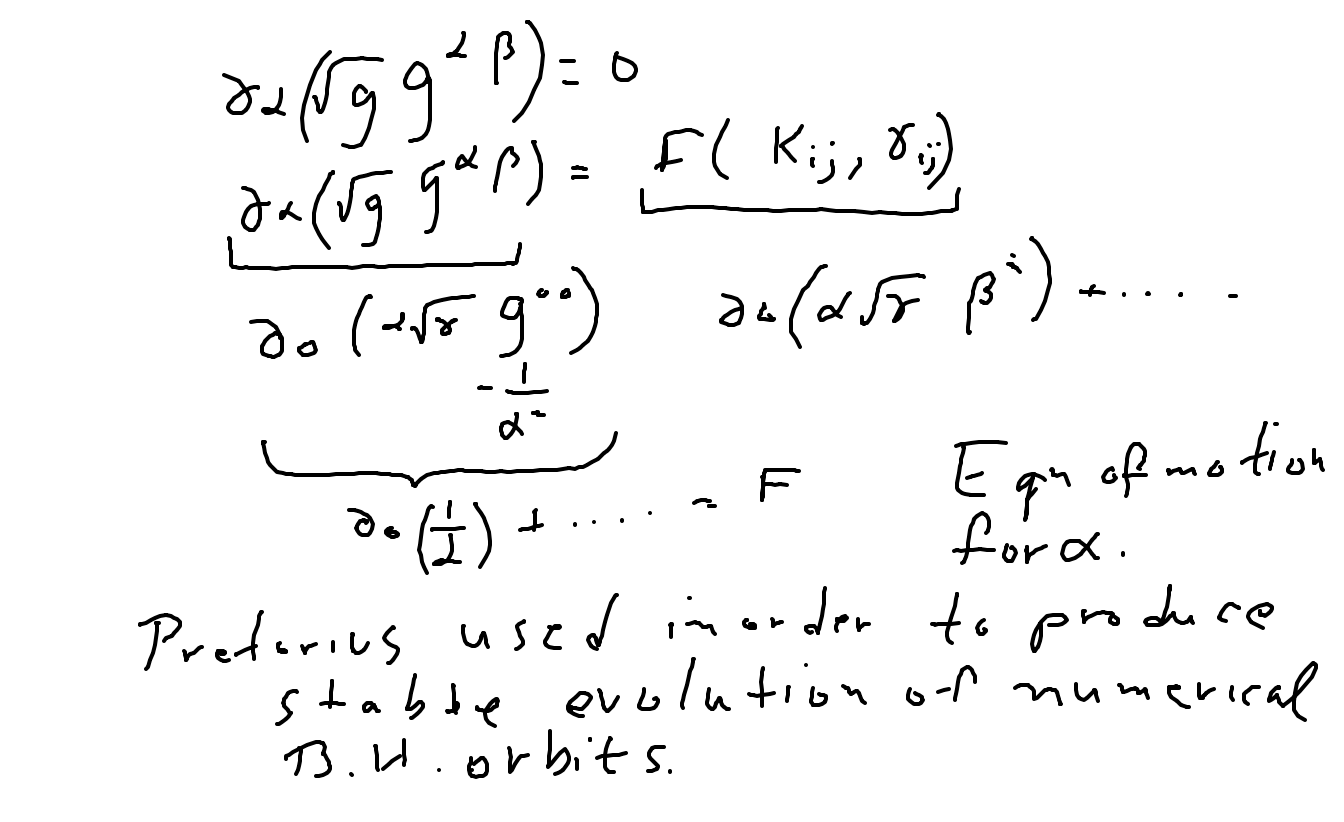 ∂α(√g g^αβ) = 0
∂α(√g g^αβ) = F(Kij, γij)
∂0(α√γ g^00) ∂0(α√γ β^i) + .....
-1/α²
∂0(1/α) + ..... = F Eqn of motion
for α.
Pretorius used in order to produce
stable evolution of numerical
B.H. orbits.